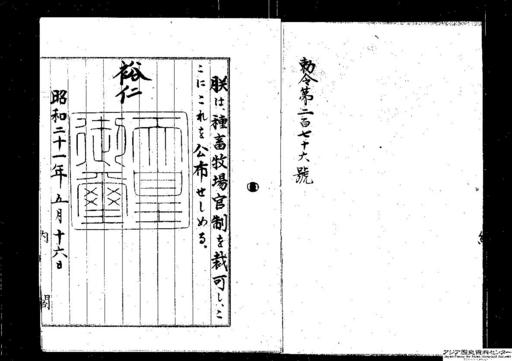 勅令第二百七十六號
朕は種畜牧場官制を裁可し、こ
こにこれを公布せしめる。
裕仁
天皇御璽
昭和二十一年五月十六日
内閣
アジア歴史資料センター